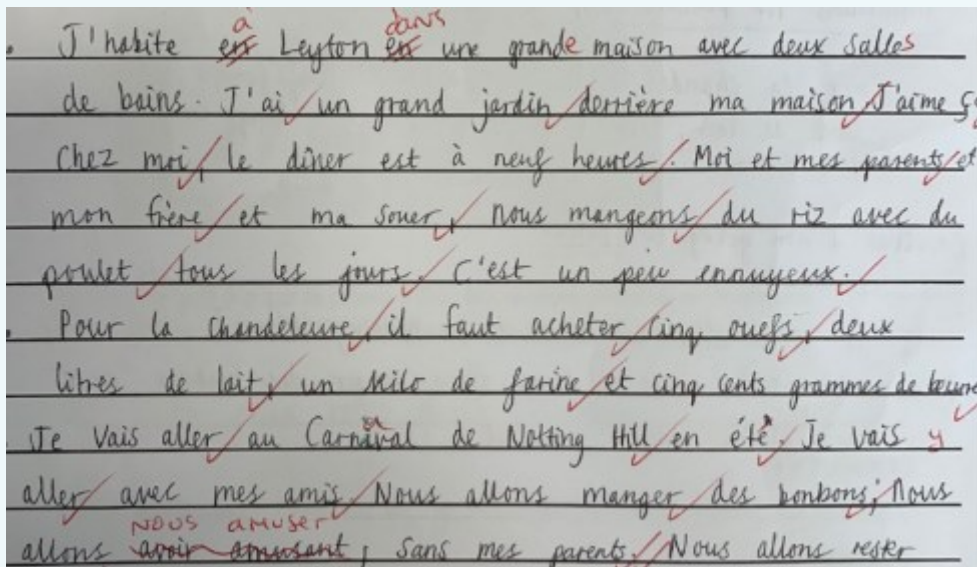 J'habite en à Leyton en dans une grande maison avec deux salles
de bains. J'ai un grand jardin derrière ma maison J'aime ç
Chez moi, le dîner est à neuf heures. Moi et mes parents et
mon frère et ma souer, nous mangeons du riz avec du
poulet tous les jours. C'est un peu ennuyeux.
Pour la Chandeleure, il faut acheter cinq ouefs, deux
litres de lait, un kilo de farine et cinq cents grammes de beurre
Je vais aller au Carnaval de Notting Hill en été. Je vais y
aller avec mes amis. Nous allons manger des bonbons; nous
NOUS AMUSER
allons avoir amusant, sans mes parents. Nous allons rester